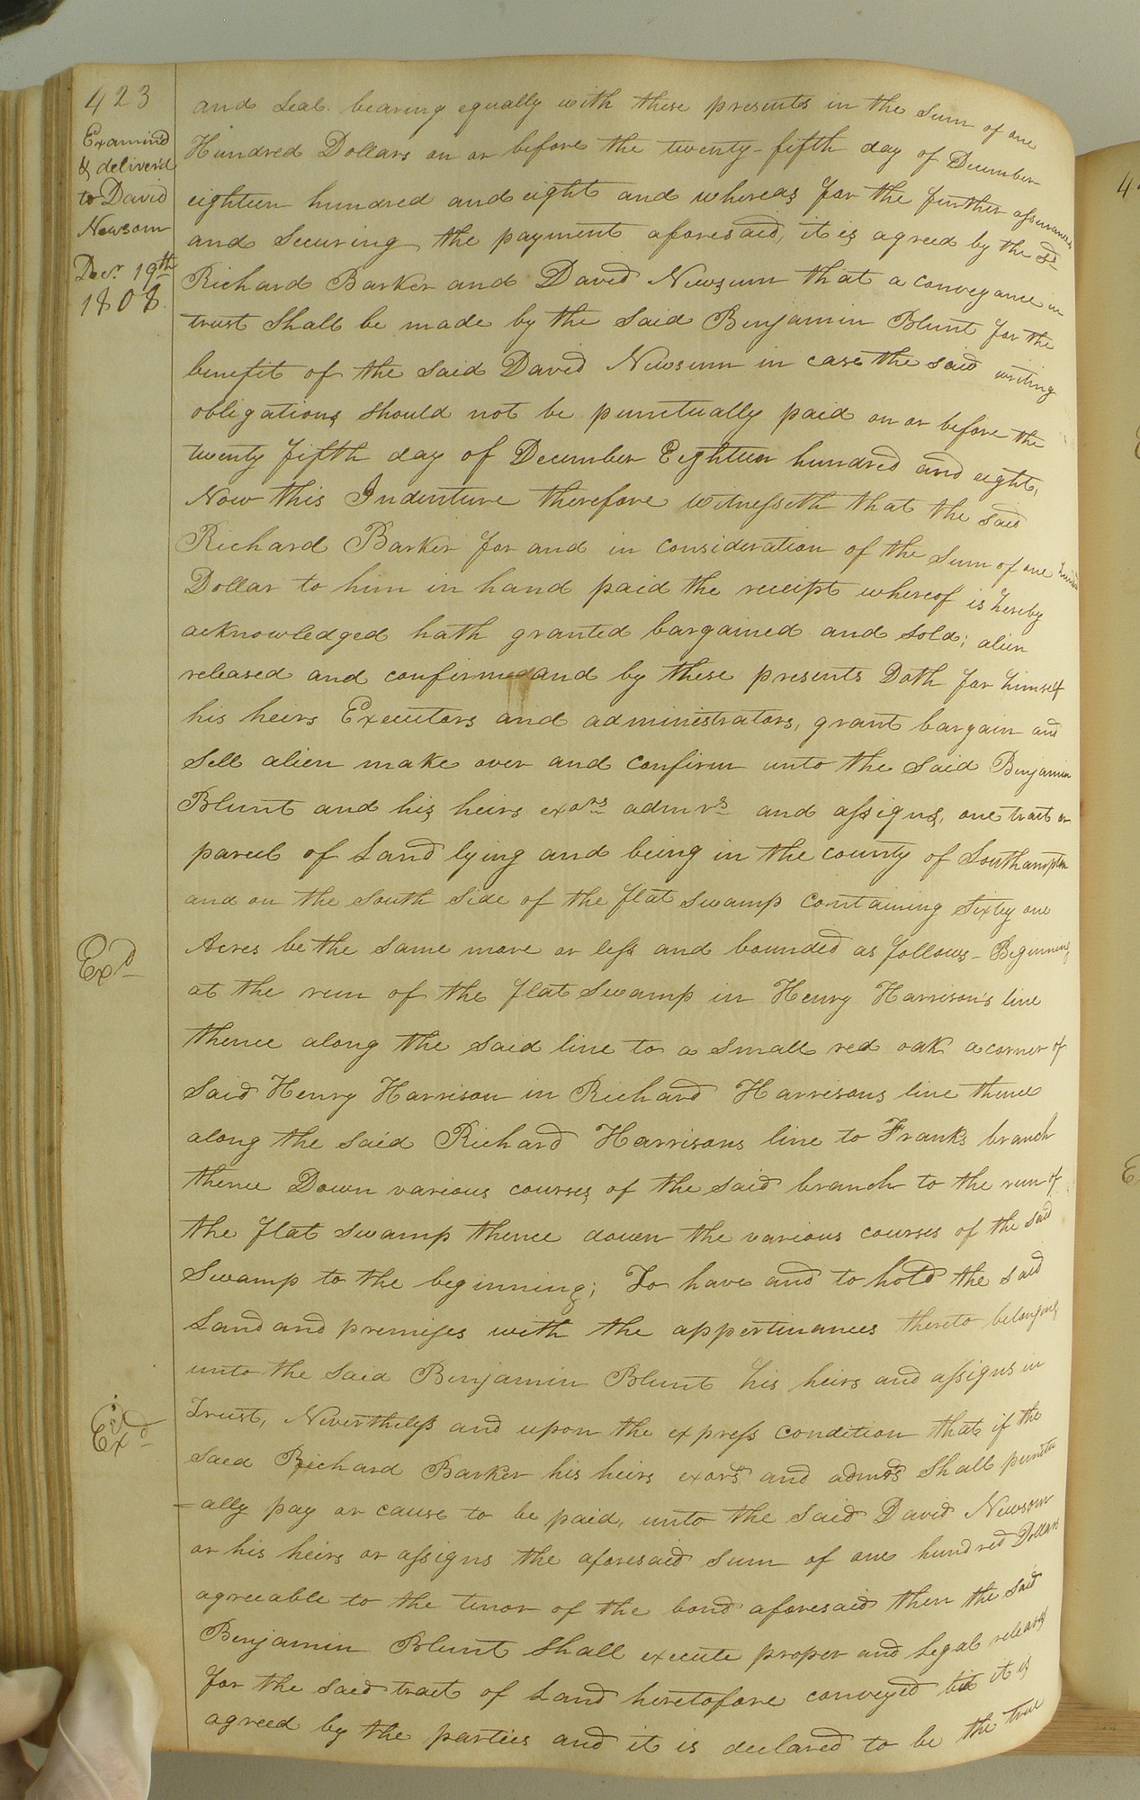 423
Examin'd
& deliver'd
to David
Newsom
Decr. 19th
1808
and Seal bearing equally with these presents in the sum of one
Hundred Dollars on or before the twenty-fifth day of December
eighteen hundred and eight and whereas for the further assurance
and securing the payment aforesaid, it is agreed by the sd
Richard Barker and David Newsum that a conveyance in
trust shall be made by the said Benjamin Blunt for the
benefit of the said David Newsum in case the said writing
obligations should not be punctually paid on or before the
twenty fifth day of December Eighteen hundred and eight,
Now this Indenture therefore witnesseth that the said
Richard Barker for and in consideration of the sum of one
Dollar to him in hand paid the receipt whereof is hereby
acknowledged hath granted bargained and sold; alien
released and confirmed and by these presents Doth for himself
his heirs Executors and administrators, grant bargain and
Sell alien make over and confirm unto the said Benjamin
Blunt and his heirs exors admrs and assigns, one tract or
parcel of Land lying and being in the county of Southampton
and on the south side of the flat swamp containing sixty one
Acres be the same more or less and bounded as follows - Beginning
at the run of the flat swamp in Henry Harrison's line
thence along the said line to a small red oak a corner of
said Henry Harrison in Richard Harrisons line thence
along the said Richard Harrisons line to Franks branch
thence Down various courses of the said branch to the run of
the flat swamp thence down the various courses of the said
Swamp to the beginning; To have and to hold the said
Land and premises with the appertinances thereto belonging
unto the said Benjamin Blunt his heirs and assigns in
Trust, Nevertheless and upon the express condition that if the
said Richard Barker his heirs exors and admrs shall punctu
=ally pay or cause to be paid, unto the said David Newsom
or his heirs or assigns the aforesaid sum of one hundred Dollars
agreeable to the tenor of the bond aforesaid then the said
Benjamin Blunt shall execute proper and legal releases
for the said tract of Land heretofore conveyed but it is
agreed by the parties and it is declared to be the true
Exd
Exd